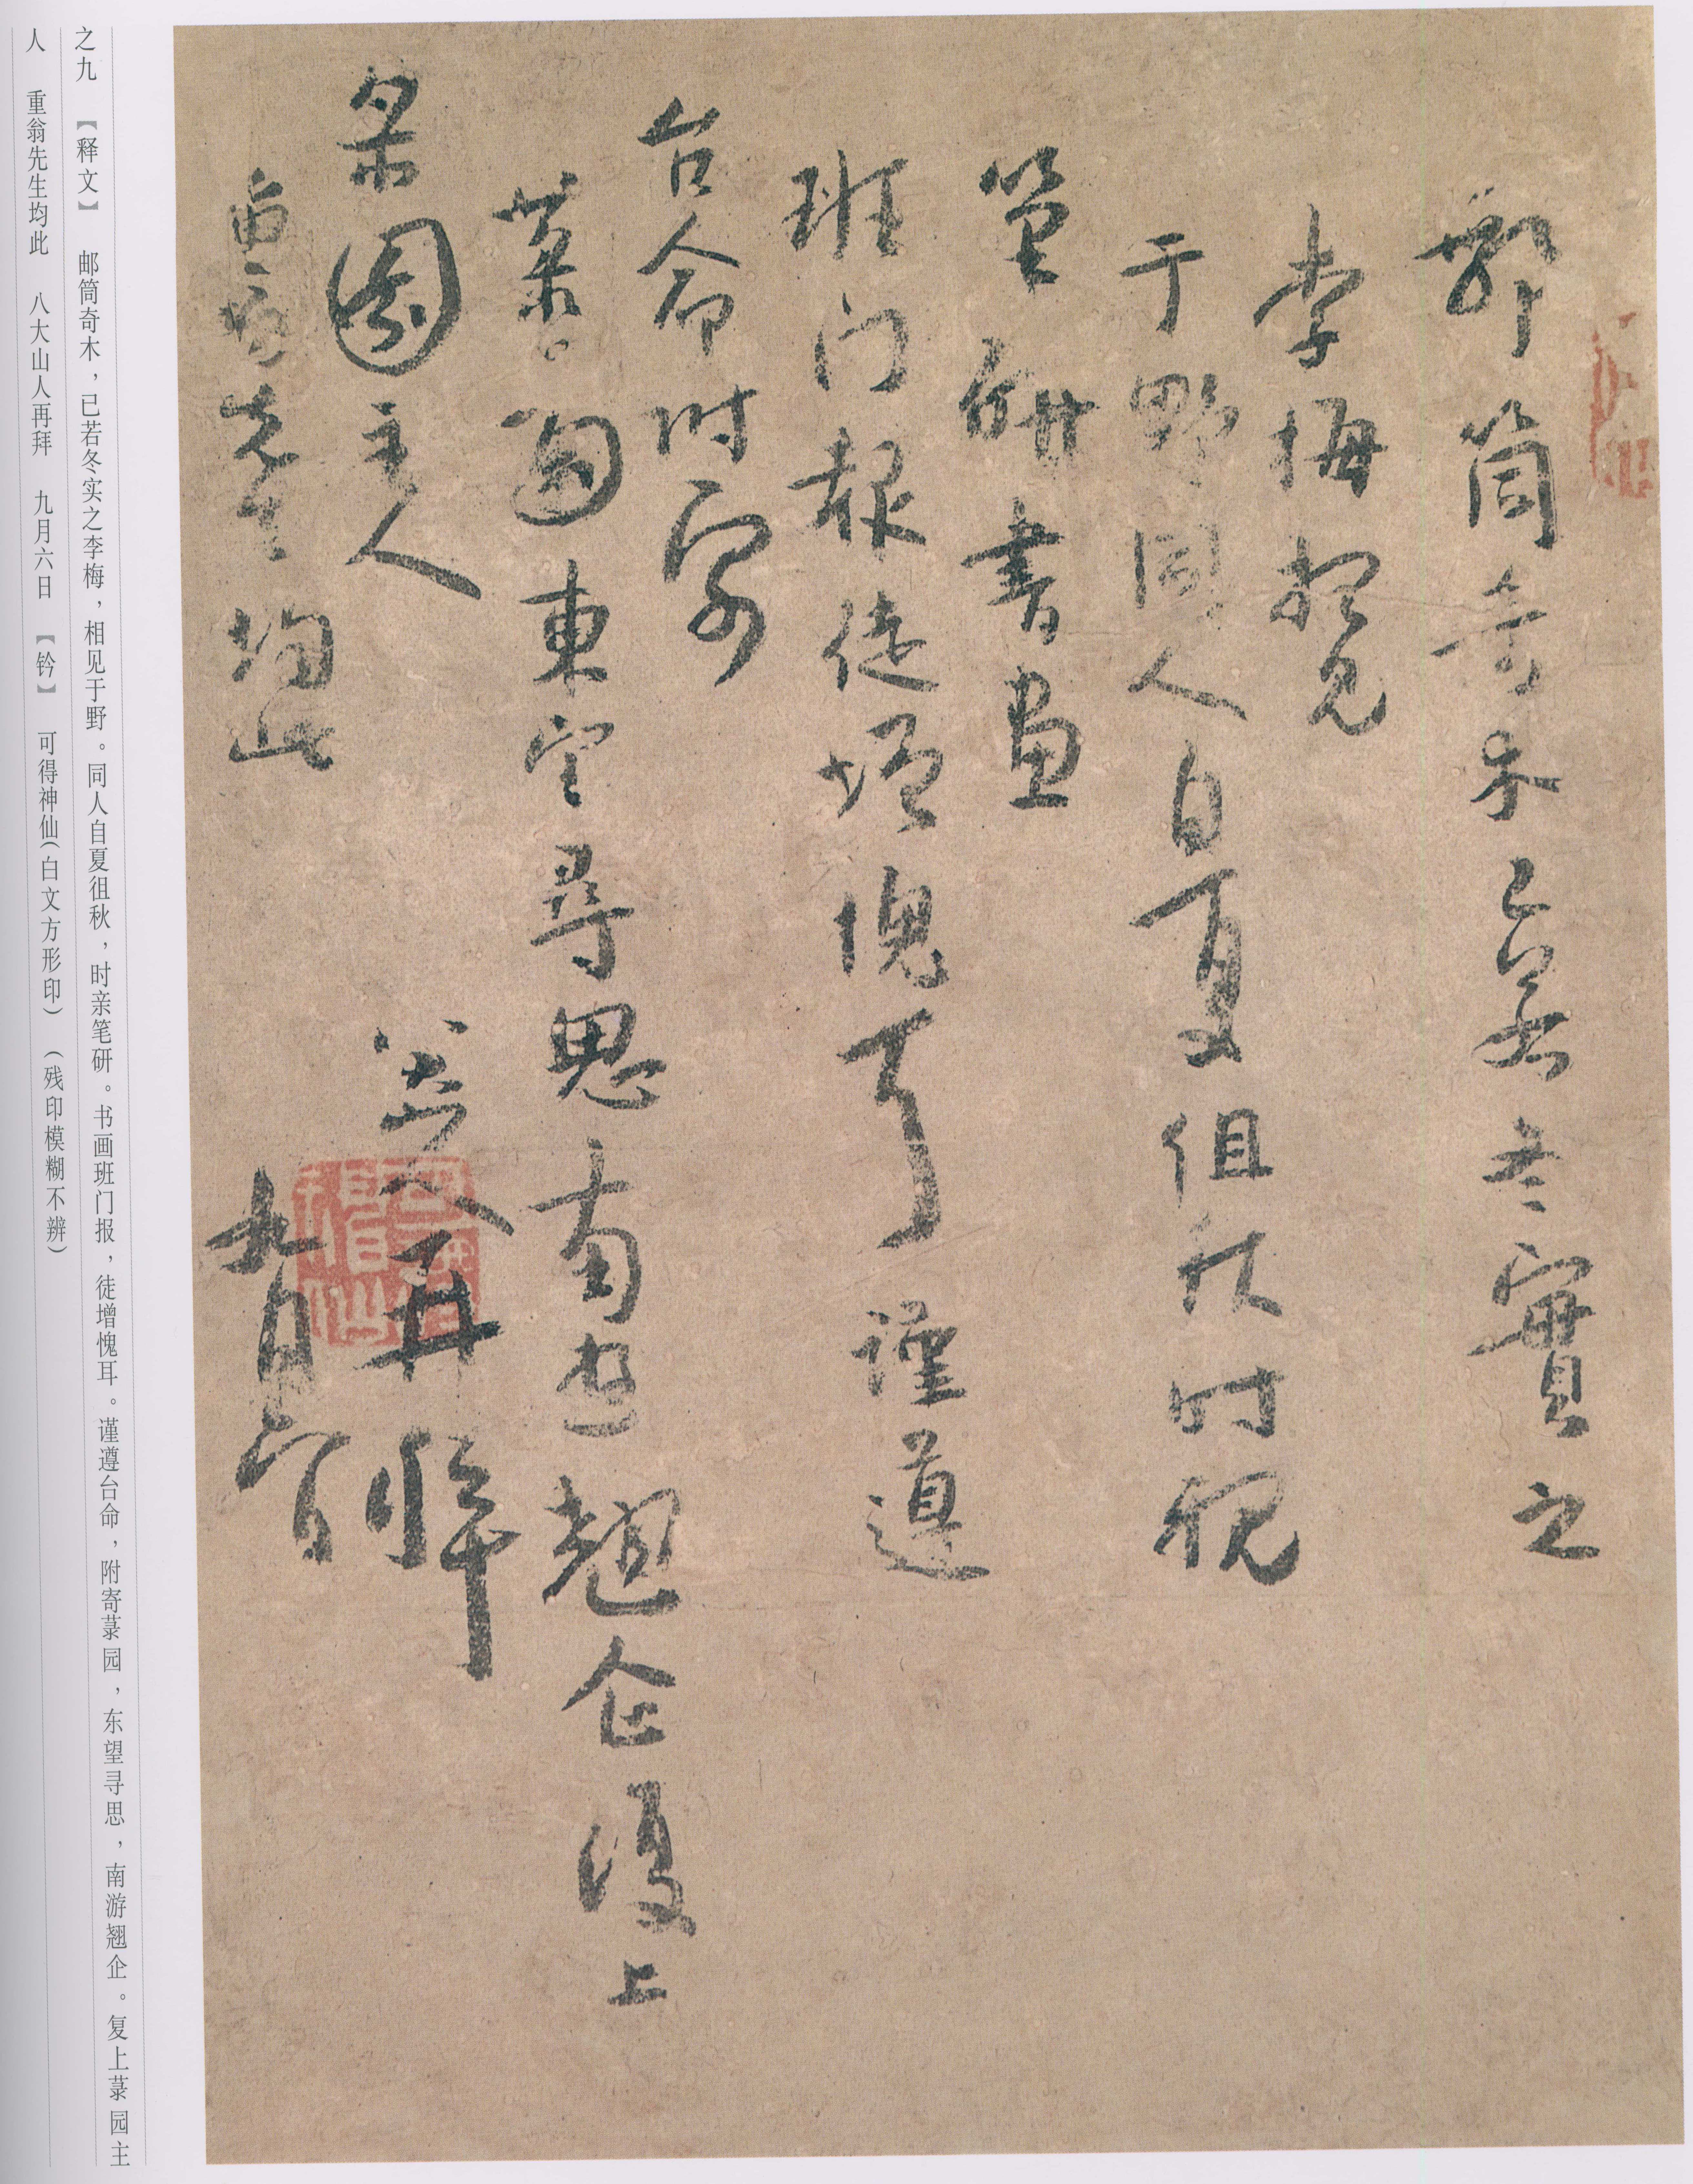 郵筒奇木已若冬實之
李梅相見
于野同人自夏徂秋时親
筆研書画
班门報徒增愧耳謹遵
台命附寄
菉園東望尋思南遊翹企復上
菉園主人
八大山人再拜
重翁先生均此
九月六日
可得神仙
之九 【释文】 邮筒奇木，已若冬实之李梅，相见于野。同人自夏徂秋，时亲笔研。书画班门报，徒增愧耳。谨遵台命，附寄菉园，东望寻思，南游翘企。复上菉园主
人 重翁先生均此 八大山人再拜 九月六日 【钤】 可得神仙(白文方形印) (残印模糊不辨)